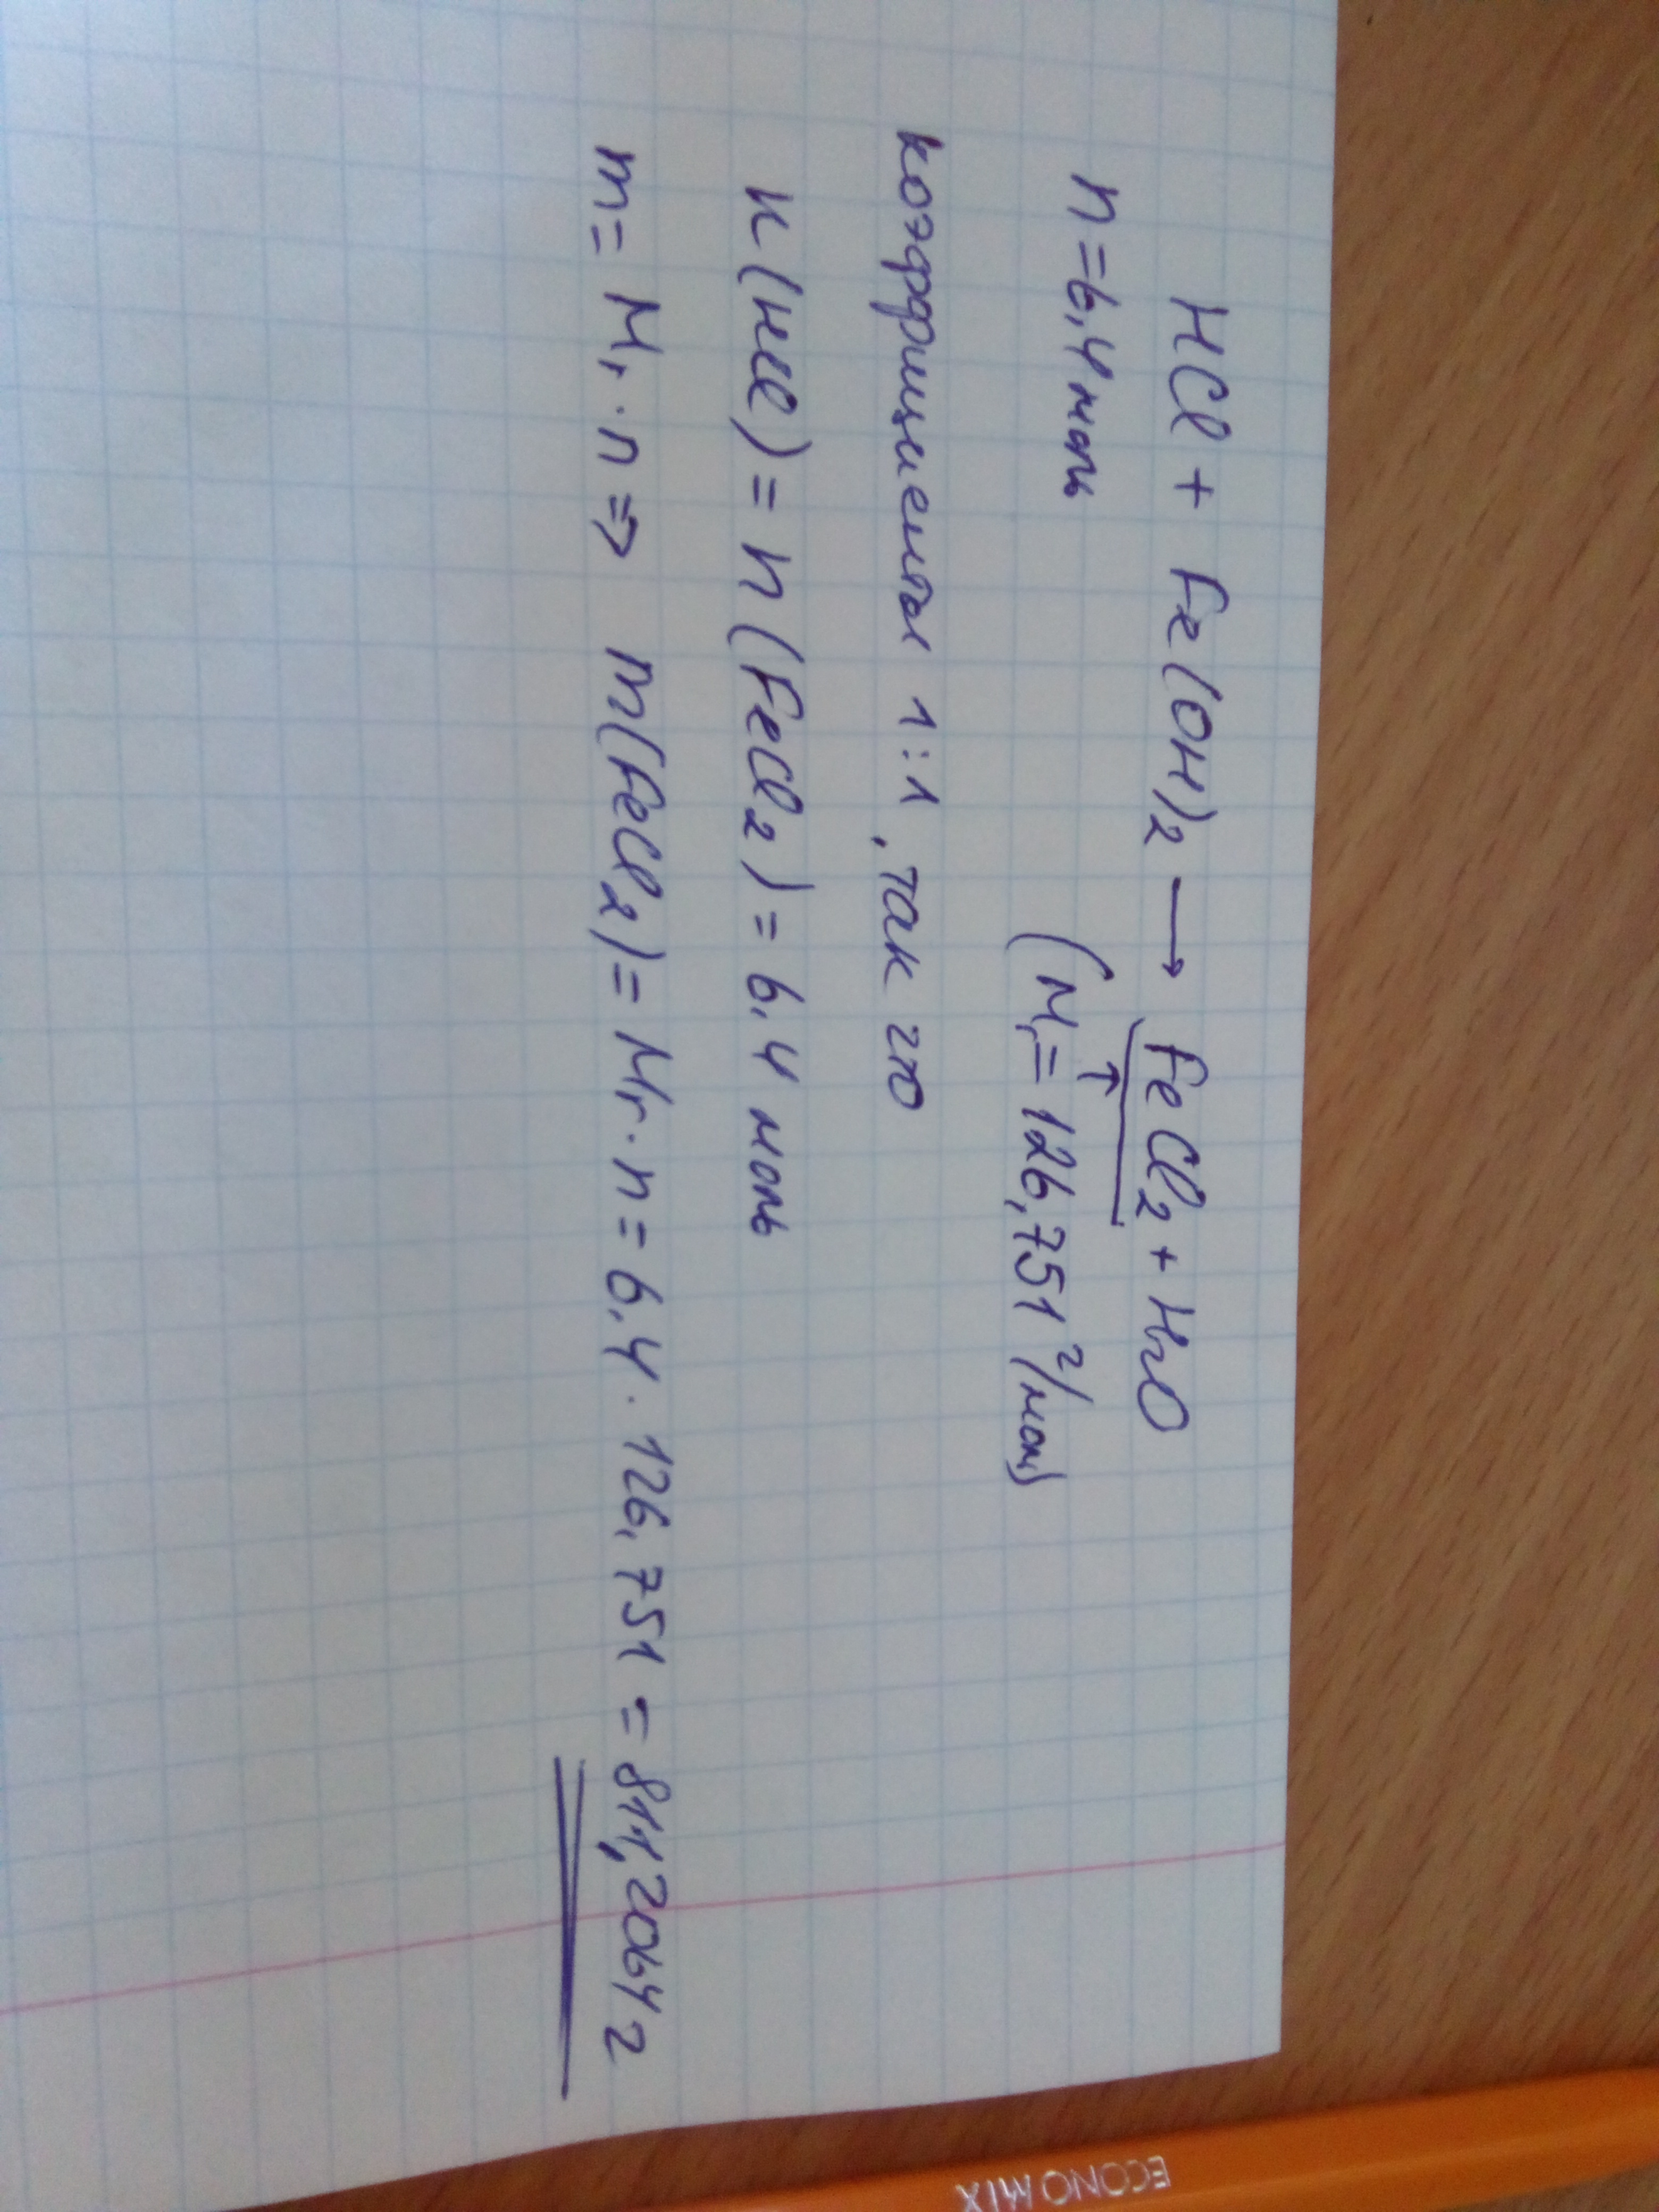 HCl + Fe(OH)₂ → FeCl₂ + H₂O
n = 6,4 моль
(Mr = 126,751 г/моль)
коэффициенты 1:1, так что
n(HCl) = n(FeCl₂) = 6,4 моль
m = Mr · n ⇒ m(FeCl₂) = Mr · n = 6,4 · 126,751 = 811,2064 г
ECONOMIX